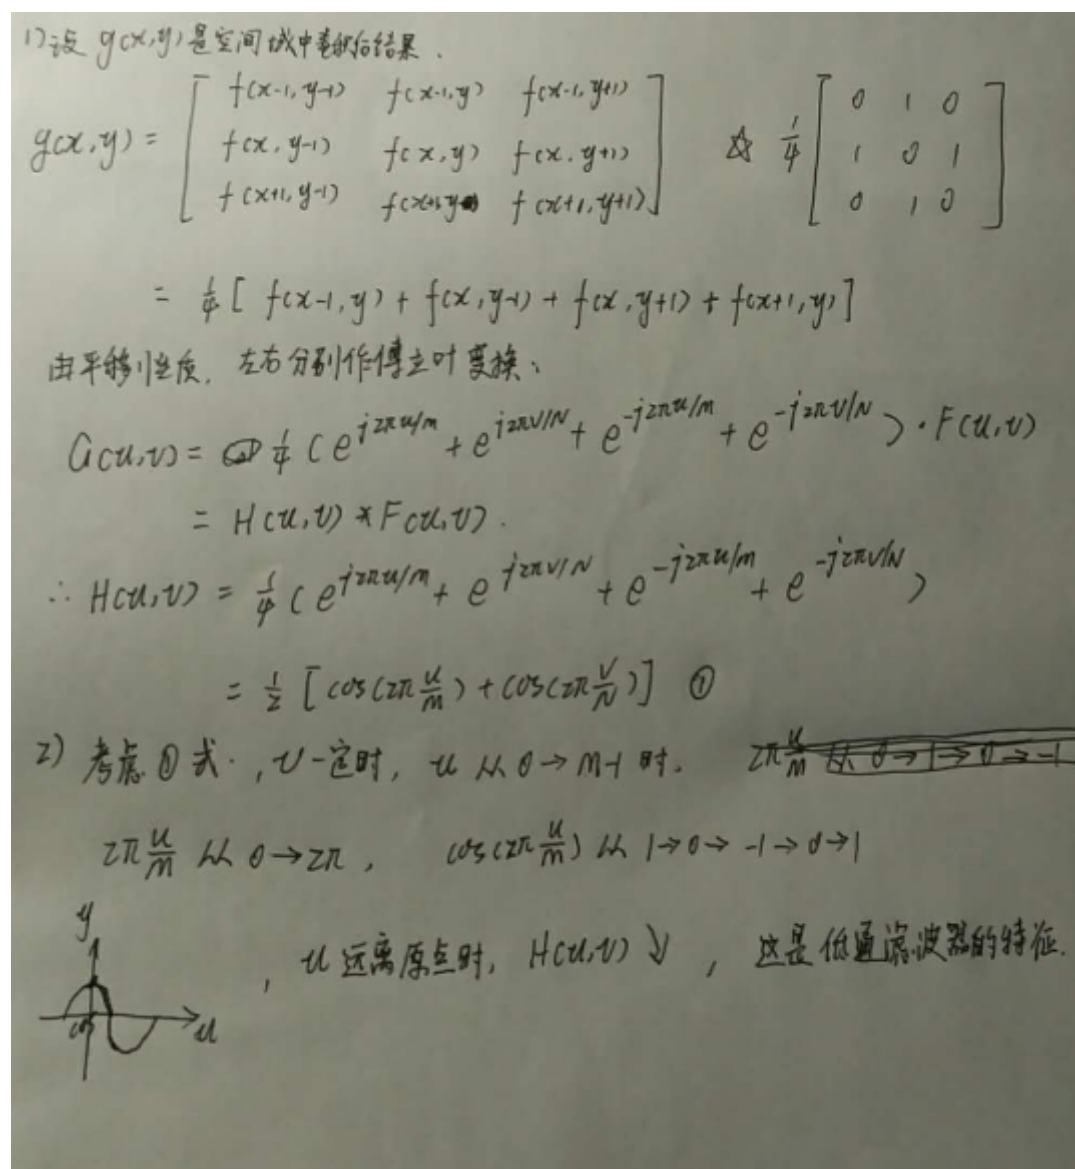 1) 设 g(x,y) 是空间域中卷积后结果.
g(x,y) = [ f(x-1,y-1) f(x-1,y) f(x-1,y+1) ; f(x,y-1) f(x,y) f(x,y+1) ; f(x+1,y-1) f(x+1,y) f(x+1,y+1) ] ☆ 1/4 [ 0 1 0 ; 1 0 1 ; 0 1 0 ]
= 1/4 [ f(x-1,y) + f(x,y-1) + f(x,y+1) + f(x+1,y) ]
由平移性质, 左右分别作傅立叶变换:
G(u,v) = 1/4 ( e^{j2πu/m} + e^{j2πv/N} + e^{-j2πu/m} + e^{-j2πv/N} ) · F(u,v)
= H(u,v) * F(u,v).
∴ H(u,v) = 1/4 ( e^{j2πu/m} + e^{j2πv/N} + e^{-j2πu/m} + e^{-j2πv/N} )
= 1/2 [ cos(2π u/m) + cos(2π v/N) ] ①
2) 考虑①式, v一定时, u 从 0→m-1 时. 2π u/m 从 0→1→0→-1
2π u/m 从 0→2π, cos(2π u/m) 从 1→0→-1→0→1
y
, u 远离原点时, H(u,v) ↓, 这是低通滤波器的特征.
u